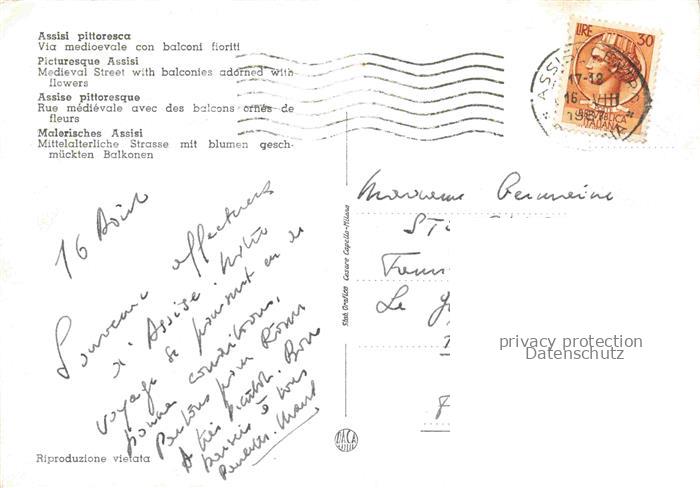 Assisi pittoresca
Via medioevale con balconi fioriti
Picturesque Assisi
Medieval Street with balconies adorned with
flowers
Assise pittoresque
Rue médiévale avec des balcons ornés de
fleurs
Malerisches Assisi
Mittelalterliche Strasse mit blumen gesch-
mückten Balkonen
16 Août
Souvenir affectueux
d'Assise. Notre
voyage se poursuit en de
bonnes conditions.
Partons pour Rome
A très bientôt. Bons
baisers à tous
Riproduzione vietata
Stab. Grafico Cesare Capello-Milano
DACA
LIRE 30
REPUBBLICA
ITALIANA
ASSISI
17-18
16 VIII
Madame Germaine
Le
privacy protection
Datenschutz